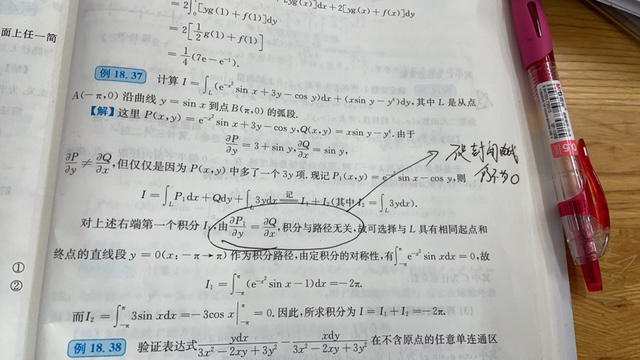 = 2∫₀¹[yg(1) + f(1)]dy
= 2[½g(1) + f(1)]
= ¼(7e − e⁻¹).
面上任一简
例 18.37 计算 I = ∫_L (e^{-x²} sin x + 3y − cos y)dx + (x sin y − y⁴)dy, 其中 L 是从点
A(−π,0) 沿曲线 y = sin x 到点 B(π,0) 的弧段.
【解】这里 P(x,y) = e^{-x²} sin x + 3y − cos y, Q(x,y) = x sin y − y⁴. 由于
∂P/∂y = 3 + sin y, ∂Q/∂x = sin y,
∂P/∂y ≠ ∂Q/∂x, 但仅仅是因为 P(x,y) 中多了一个 3y 项. 现记 P₁(x,y) = e^{-x²} sin x − cos y, 则
I = ∫_L P₁dx + Qdy + ∫_L 3ydx 记= I₁ + I₂ (其中 I₂ = ∫_L 3ydx).
对上述右端第一个积分 I₁, 由 ∂P₁/∂y = ∂Q/∂x, 积分与路径无关, 故可选择与 L 具有相同起点和
终点的直线段 y = 0(x: −π → π) 作为积分路径, 由定积分的对称性, 有 ∫_{−π}^{π} e^{-x²} sin xdx = 0, 故
I₁ = ∫_{−π}^{π} (e^{-x²} sin x − 1)dx = −2π.
而 I₂ = ∫_{−π}^{π} 3sin xdx = −3cos x |_{−π}^{π} = 0. 因此, 所求积分为 I = I₁ + I₂ = −2π.
例 18.38 验证表达式 ydx/(3x² − 2xy + 3y²) − xdy/(3x² − 2xy + 3y²) 在不含原点的任意单连通区
①
②
封闭曲线
不为0
0.5